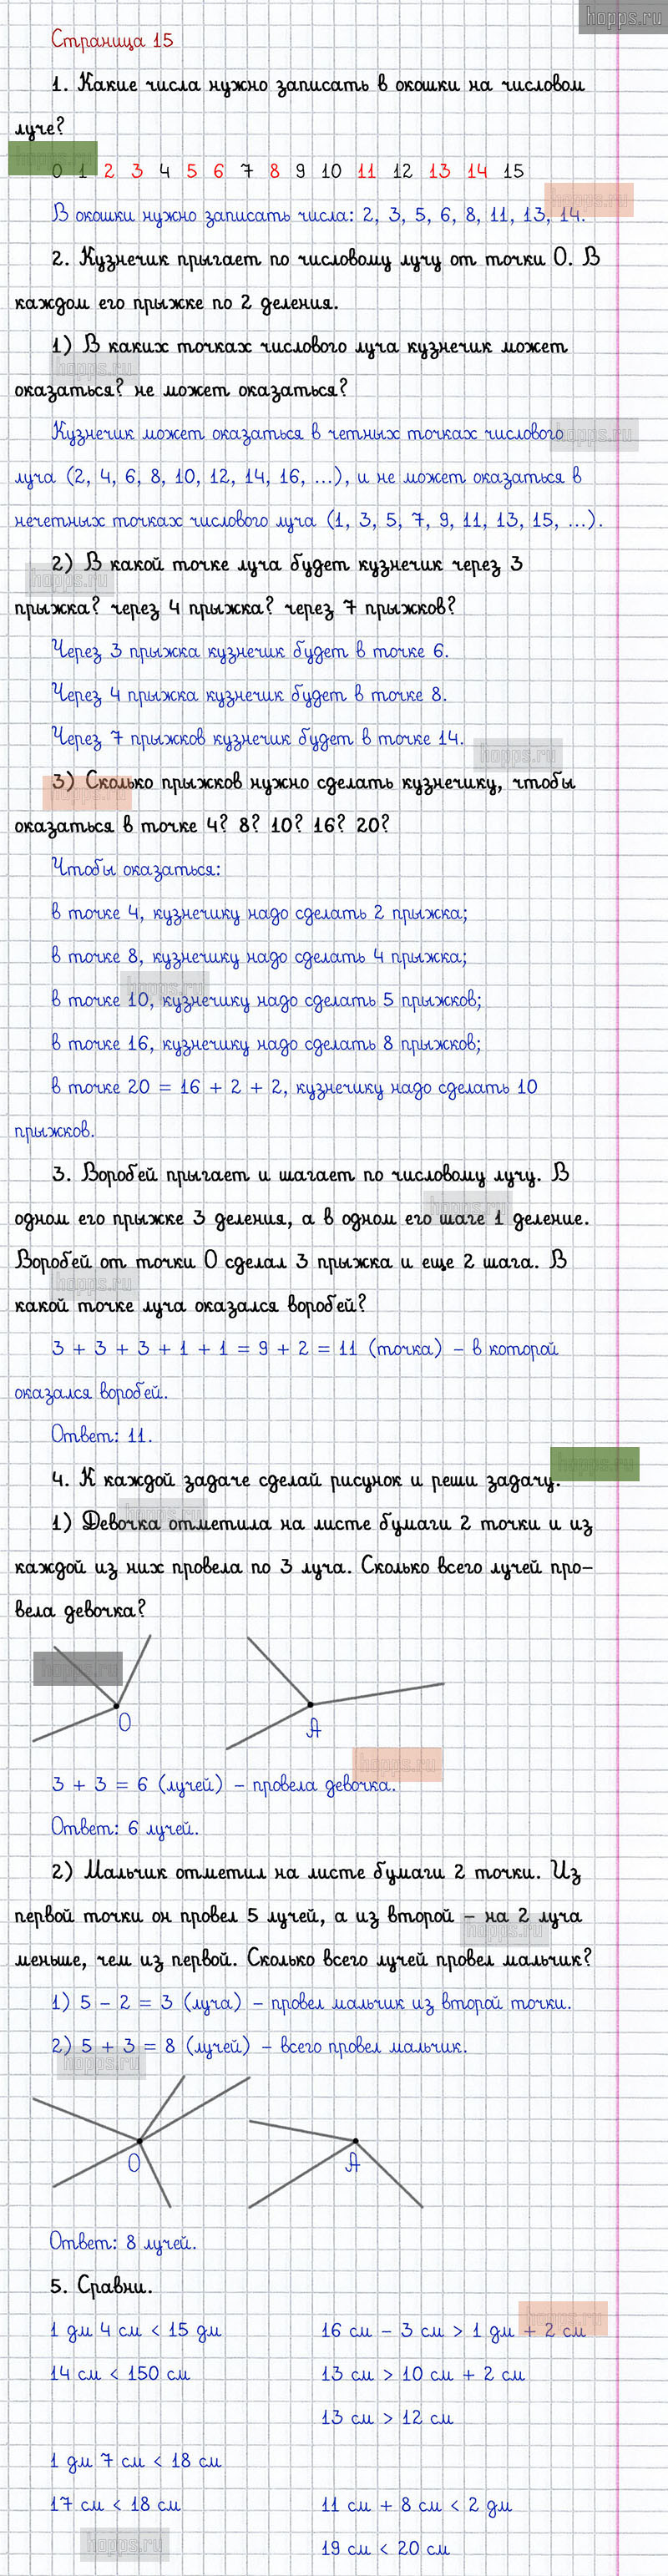 hopps.ru
Страница 15
1. Какие числа нужно записать в окошки на числовом
луче?
0 1 2 3 4 5 6 7 8 9 10 11 12 13 14 15
hopps.ru
В окошки нужно записать числа: 2, 3, 5, 6, 8, 11, 13, 14.
2. Кузнечик прыгает по числовому лучу от точки 0. В
каждом его прыжке по 2 деления.
1) В каких точках числового луча кузнечик может
hopps.ru
оказаться? не может оказаться?
Кузнечик может оказаться в четных точках числового
hopps.ru
луча (2, 4, 6, 8, 10, 12, 14, 16, ...), и не может оказаться в
нечетных точках числового луча (1, 3, 5, 7, 9, 11, 13, 15, ...).
2) В какой точке луча будет кузнечик через 3
hopps.ru
прыжка? через 4 прыжка? через 7 прыжков?
Через 3 прыжка кузнечик будет в точке 6.
Через 4 прыжка кузнечик будет в точке 8.
Через 7 прыжков кузнечик будет в точке 14.
hopps.ru
3) Сколько прыжков нужно сделать кузнечику, чтобы
hopps.ru
оказаться в точке 4? 8? 10? 16? 20?
Чтобы оказаться:
в точке 4, кузнечику надо сделать 2 прыжка;
в точке 8, кузнечику надо сделать 4 прыжка;
hopps.ru
в точке 10, кузнечику надо сделать 5 прыжков;
в точке 16, кузнечику надо сделать 8 прыжков;
в точке 20 = 16 + 2 + 2, кузнечику надо сделать 10
прыжков.
3. Воробей прыгает и шагает по числовому лучу. В
hopps.ru
одном его прыжке 3 деления, а в одном его шаге 1 деление.
Воробей от точки 0 сделал 3 прыжка и еще 2 шага. В
hopps.ru
какой точке луча оказался воробей?
3 + 3 + 3 + 1 + 1 = 9 + 2 = 11 (точка) – в которой
оказался воробей.
Ответ: 11.
hopps.ru
4. К каждой задаче сделай рисунок и реши задачу.
hopps.ru
1) Девочка отметила на листе бумаги 2 точки и из
каждой из них провела по 3 луча. Сколько всего лучей про-
вела девочка?
hopps.ru
О
А
hopps.ru
3 + 3 = 6 (лучей) – провела девочка.
Ответ: 6 лучей.
2) Мальчик отметил на листе бумаги 2 точки. Из
первой точки он провел 5 лучей, а из второй – на 2 луча
hopps.ru
меньше, чем из первой. Сколько всего лучей провел мальчик?
1) 5 – 2 = 3 (луча) – провел мальчик из второй точки.
2) 5 + 3 = 8 (лучей) – всего провел мальчик.
hopps.ru
О
А
Ответ: 8 лучей.
5. Сравни.
hopps.ru
1 дм 4 см < 15 дм
16 см – 3 см > 1 дм + 2 см
14 см < 150 см
13 см > 10 см + 2 см
13 см > 12 см
1 дм 7 см < 18 см
17 см < 18 см
11 см + 8 см < 2 дм
hopps.ru
19 см < 20 см